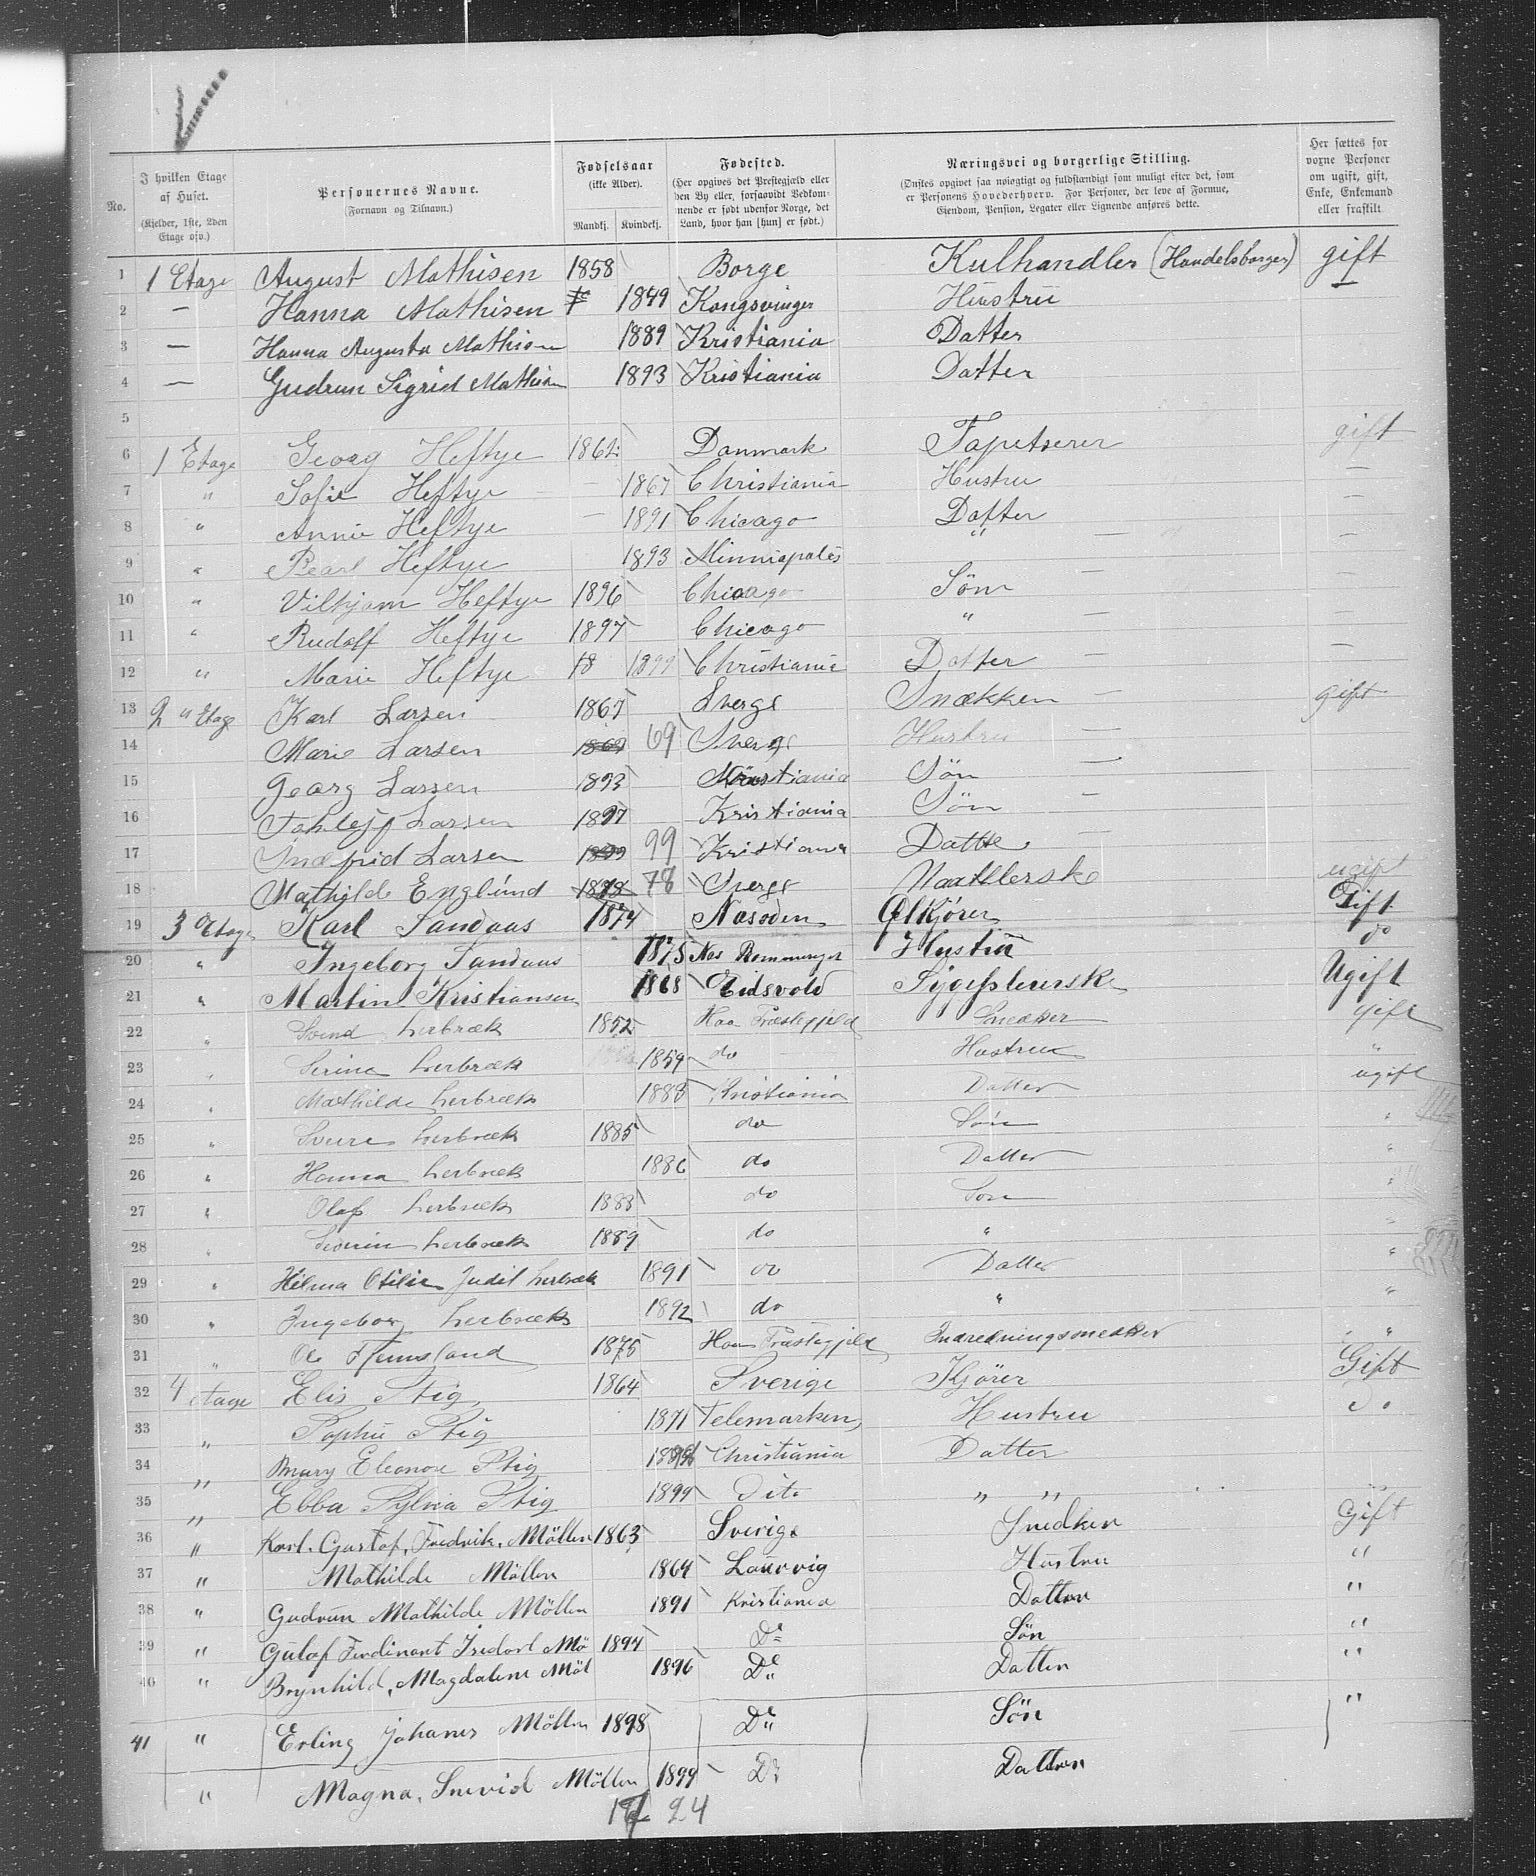 V
No.
I hvilken Etage af Huset. (Kjelder, 1ste, 2den Etage osv.)
Personernes Navne. (Fornavn og Tilnavn.)
Fødselsaar (ikke Alder). Mandkj. Kvindekj.
Fødested. (Her opgives det Prestegjæld eller den By eller, forsaavidt Vedkommende er født udenfor Norge, det Land, hvor han [hun] er født.)
Næringsvei og borgerlige Stilling. (Ønskes opgivet saa nøiagtigt og fuldstændigt som muligt efter det, som er Personens Hovederhverv. For Personer, der leve af Formue, Eiendom, Pension, Legater eller Lignende anføres dette.)
Her sættes for vorne Personer om ugift, gift, Enke, Enkemand eller fraskilt
1 1 Etage August Mathisen 1858 Borge Kulhandler (Handelsborger) gift
2 — Hanna Mathisen 1849 Kongsvinger Hustru —
3 — Hanna Augusta Mathisen 1889 Kristiania Datter
4 — Gudrun Sigrid Mathisen 1893 Kristiania Datter
5
6 1 Etage Georg Heftye 1862 Danmark Tapetserer gift
7 " Sofie Heftye — 1867 Christiania Hustru —
8 " Annie Heftye — 1891 Chicago Datter —
9 " Pearl Heftye 1893 Minniapoles " — —
10 " Vilhjam Heftye 1896 Chicago Sön — —
11 " Rudolf Heftye 1897 Chicago " — —
12 " Marie Heftye 18 1899 Christiania Datter — —
13 2 " Etage Karl Larsen 1867 Sverge Snækker — gift
14 Marie Larsen 1869 69 Sverge Hustru —
15 Georg Larsen 1893 Kristiania Sön —
16 Larsen 1897 Kristiania Sön —
17 Larsen 1899 99 Kristiania Datter —
18 Mathilde Englund 1878 78 Sverge ugift
19 3 Etage Karl Sandaas 1874 Nasoden Ølkjører Gift
20 " Ingeborg Sandaas 1875 Nes Hustru do
21 " Martin Kristiansen 1868 Eidsvold Ugift
22 " Svend Lerbræk 1852 Haa Præstegjeld Snedker gift
23 " Serine Lerbræk 1859 do Hustru "
24 " Mathilde Lerbræk 1883 Kristiania Datter ugift
25 " Sverre Lerbræk 1885 do Søn "
26 " Hanna Lerbræk 1886 do Datter "
27 " Olaf Lerbræk 1888 do Søn "
28 " Severin Lerbræk 1889 do " "
29 " Hilma Otilie Judit Lerbræk 1891 do Datter "
30 " Ingeborg Lerbræk 1892 do " "
31 " Ole 1875 Haa Præstegjeld Indredningssnedker "
32 4 etage Elis Stig 1864 Sverige Kjører Gift
33 " Sophie Stig 1871 Telemarken Hustru do
34 " Mary Eleonore Stig Christiania Datter
35 " Ebba Sylvia Stig 1899 Dito " "
36 " Karl. Gustaf, Fredrik, Möllen 1863 Sverige Snedker Gift
37 " Mathilde Möllen 1864 Laurvig Hustru "
38 " Gudrun Mathilde Möllen 1891 Kristiania Datter "
39 " Gutaf Ferdinant Mö 1894 Do Sön "
40 " Brynhild, Magdalene Möl 1896 Do Datter "
41 " Erling Johanes Möllen 1898 Do Sön "
" Magna, Möllen 1899 Do Datter
17 24